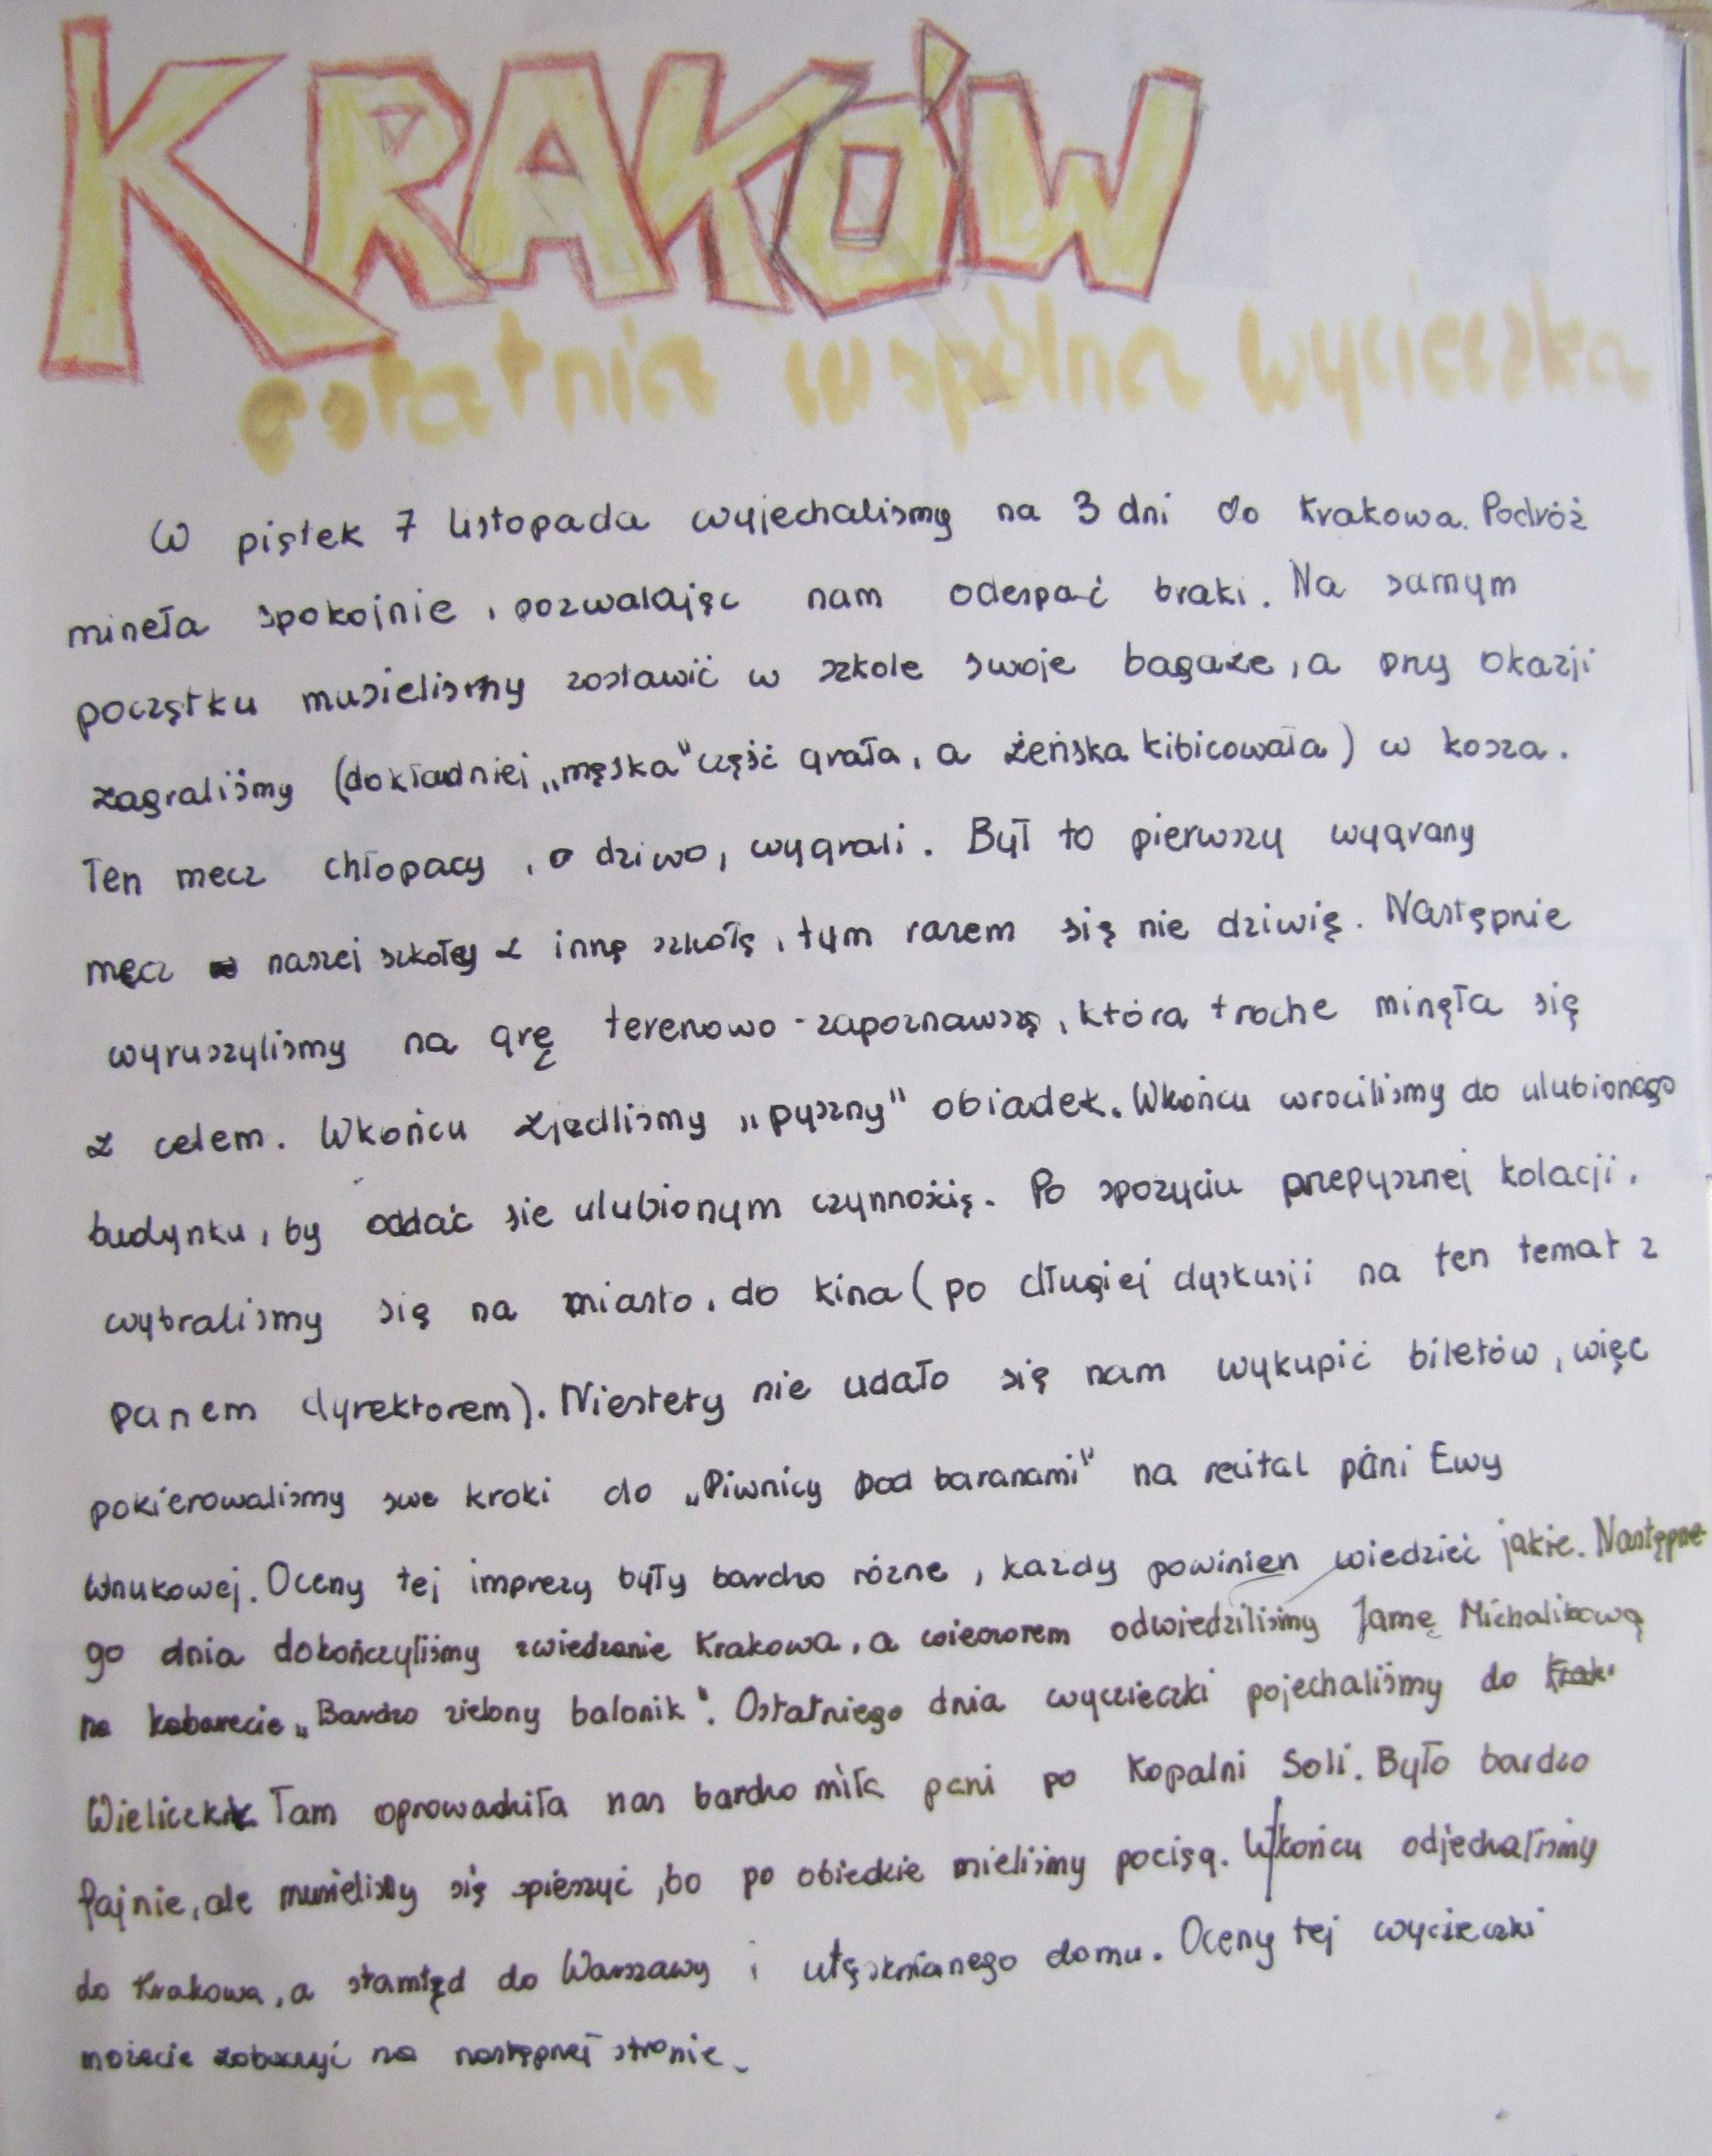 KRAKÓW
ostatnia wspólna wycieczka
W piątek 7 listopada wyjechaliśmy na 3 dni do Krakowa. Podróż
mineła spokojnie, pozwalając nam odespać braki. Na samym
początku musieliśmy zostawić w szkole swoje bagaże, a przy okazji
zagraliśmy (dokładniej „męska" część grała, a żeńska kibicowała) w kosza.
Ten mecz chłopacy, o dziwo, wygrali. Był to pierwszy wygrany
mecz naszej szkoły z inną szkołą, tym razem się nie dziwię. Następnie
wyruszyliśmy na grę terenowo-zapoznawszą, która troche minęła się
z celem. Wkońcu zjedliśmy „pyszny" obiadek. Wkońcu wrociliśmy do ulubionego
budynku, by oddać sie ulubionym czynnością. Po spozyciu przepysznej kolacji,
wybraliśmy się na miasto, do kina (po długiej dyskusji na ten temat z
panem dyrektorem). Niestety nie udało się nam wykupić biletów, więc
pokierowaliśmy swe kroki do „Piwnicy pod baranami" na recital pani Ewy
Wnukowej. Oceny tej imprezy były bardzo rózne, kazdy powinien wiedzieć jakie. Następne-
go dnia dokończyliśmy zwiedzanie Krakowa, a wieczorem odwiedziliśmy Jamę Michalikową
na kabarecie „Bardzo zielony balonik". Ostatniego dnia wycieczki pojechaliśmy do Krak
Wieliczki. Tam oprowadziła nas bardzo miła pani po Kopalni Soli. Było bardzo
fajnie, ale musieliśmy się spieszyć, bo po obiedzie mieliśmy pociąg. Wkońcu odjechaliśmy
do Krakowa, a stamtąd do Warszawy i utęsknianego domu. Oceny tej wycieczki
możecie zobaczyć na następnej stronie.